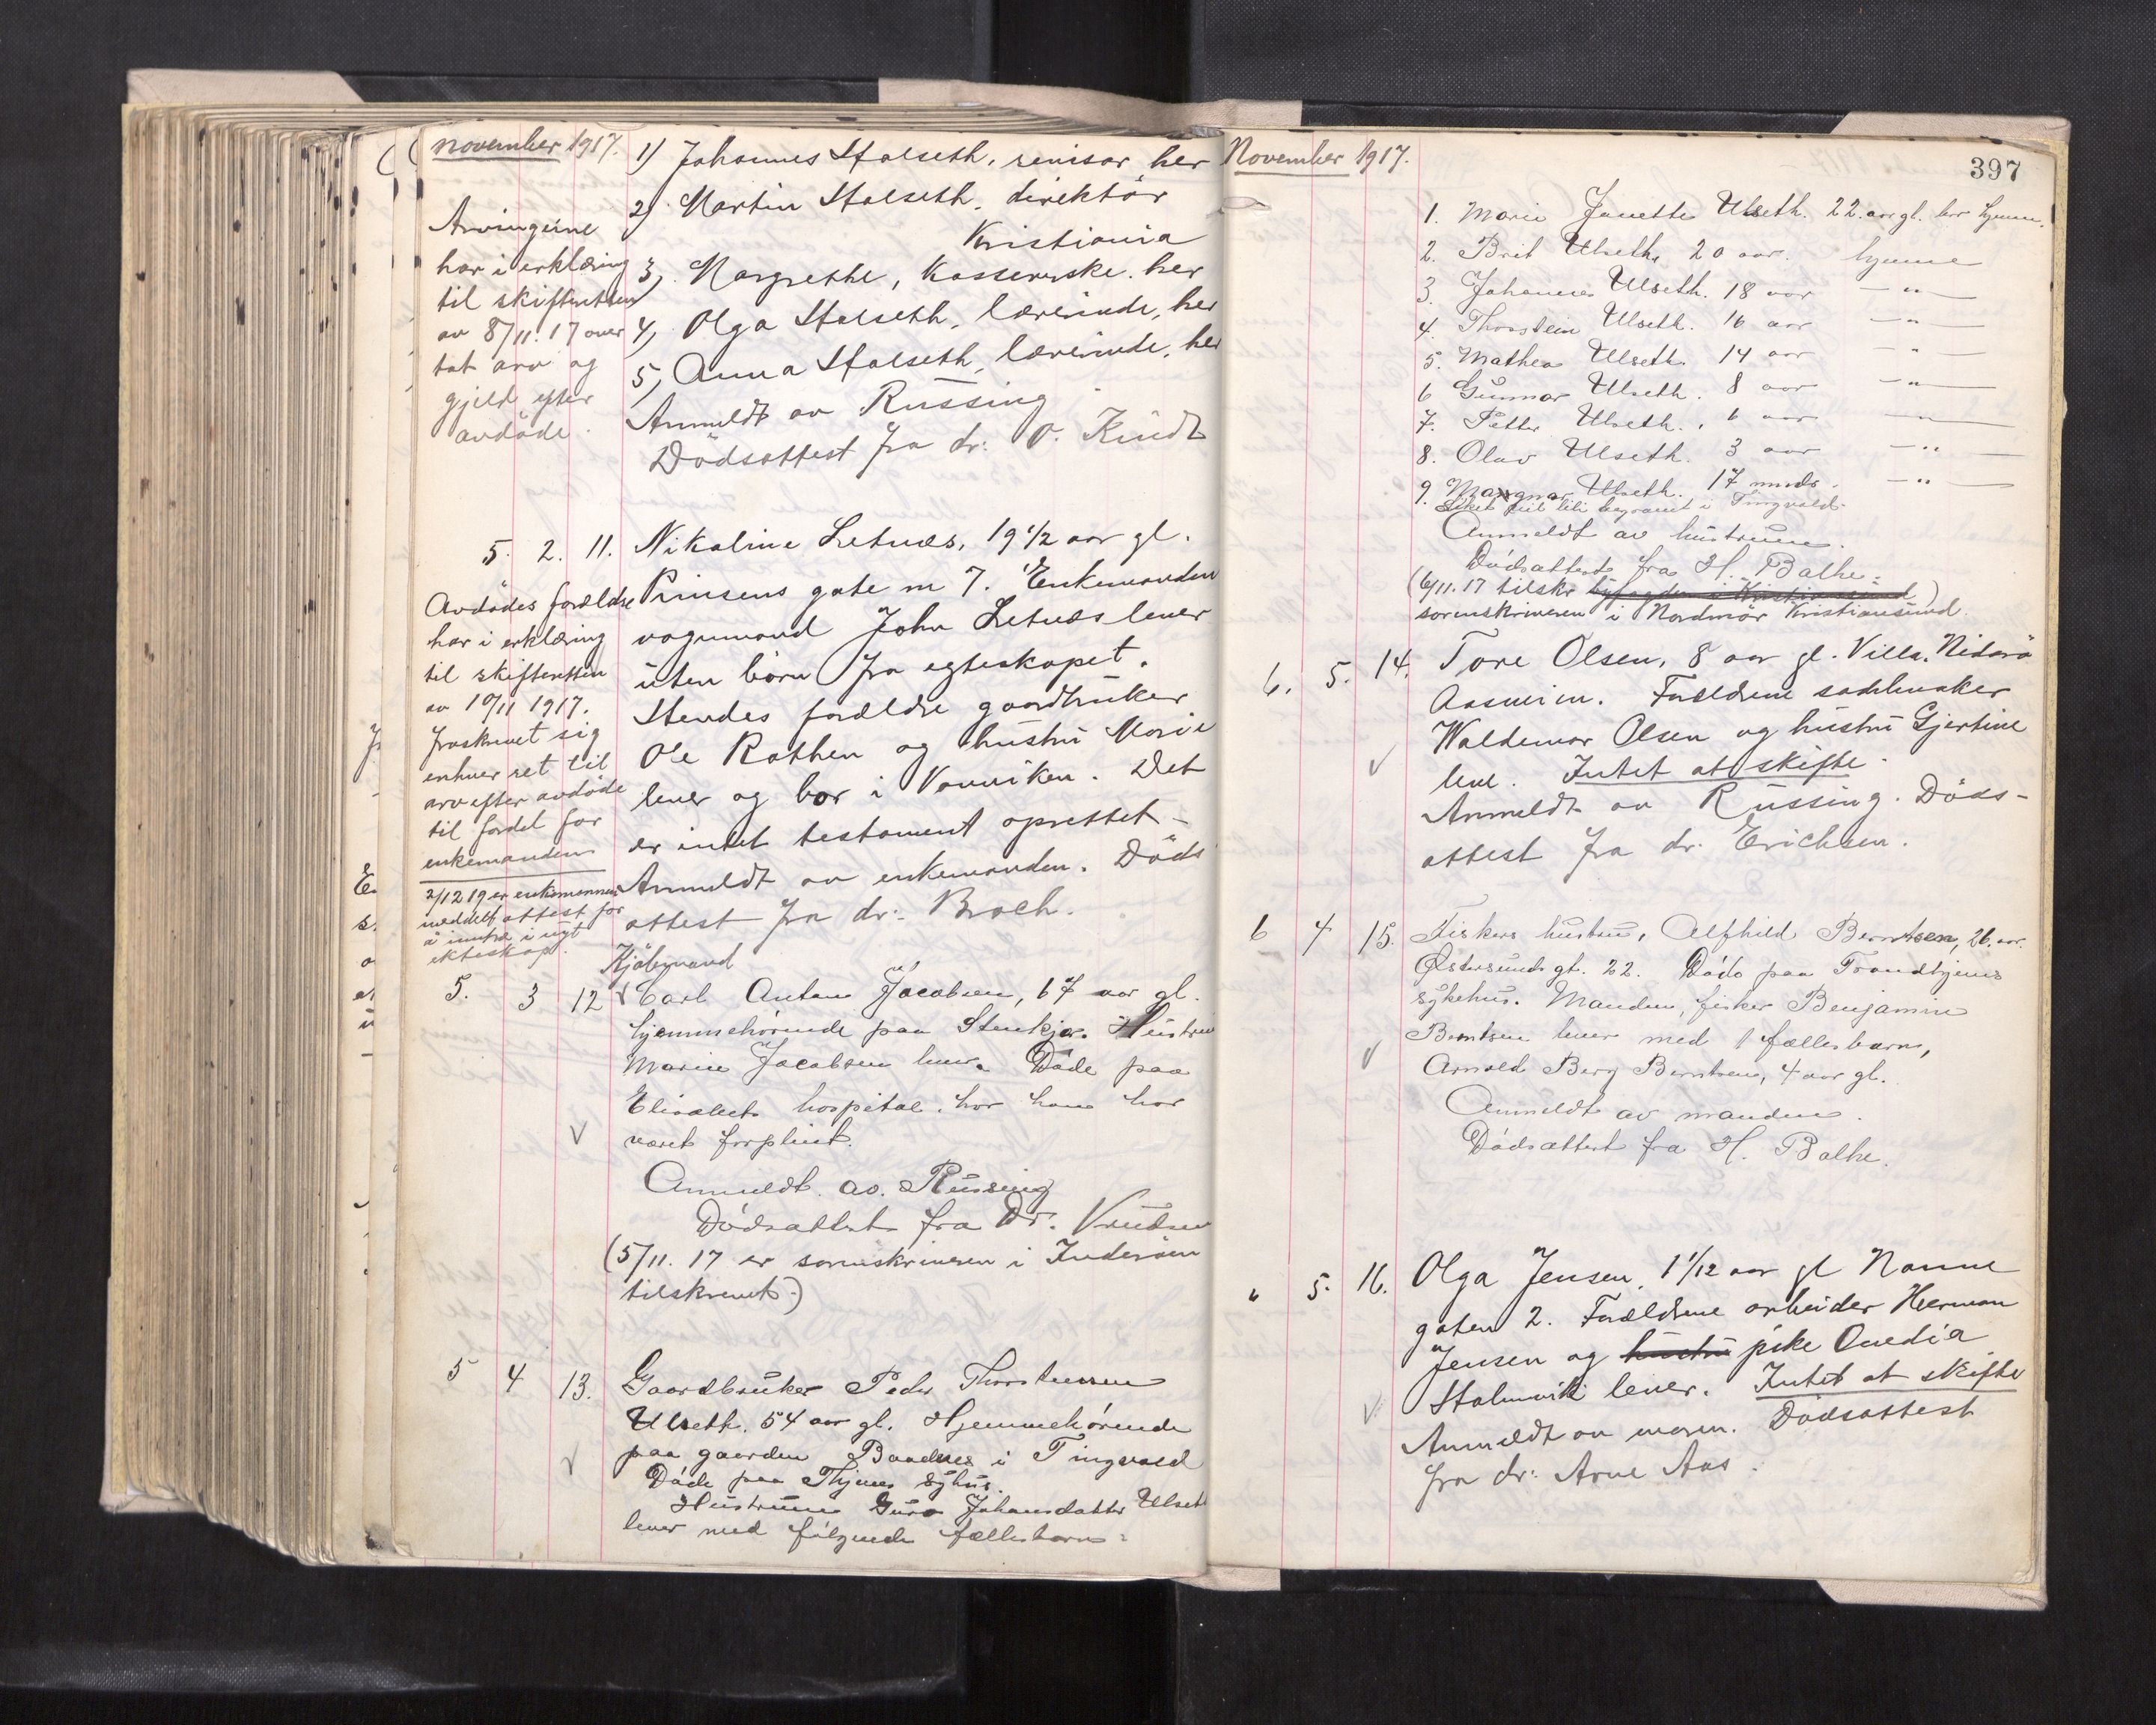 November 1917.
1) Johannes Stalseth, revisor her
2) Martin Stalseth, direktör
Kristiania
3) Margrethe, Kassererske. her
4) Olga Stalseth, lærerinde, her
5) Anna Stalseth, lærerinde, her
Anmeldt av Russing
Dödsattest fra dr: O. Kindt
Arvingerne
har i erklæring
til skifteretten
av 8/11. 17 over
tat arv og
gjeld efter
avdöde.
5. 2. 11. Nikoline Letnæs, 19 1/2 aar gl.
Prinsens gate nr 7. Enkemanden
vognmand John Letnæs lever
uten börn fra egteskapet.
Hendes forældre gaardbruker
Ole Rathen og hustru Marie
lever og bor i Vanviken. Det
er intet testament oprettet -
Anmeldt av enkemanden. Döds
attest fra dr: Broch.
Avdödes forældre
har i erklæring
til skifteretten
av 10/11 1917.
fraskrevet sig
enhver ret til
arv efter avdöde
til fordel for
enkemanden
2/12 19 er enkemannen
meddelt attest for
å inntre i nyt
ekteskap.
Kjöbmand
5. 3 12 Carl Anton Jacobsen, 67 aar gl.
hjemmehörende paa Stenkjær. Hustru
Marie Jacobsen lever. Döde paa
Elisabeth hospital, hvor han har
været forpleiet.
Anmeldt av. Russing
Dödsattest fra Dr. Knudsen
(5/11. 17 er sorenskriveren i Inderöen
tilskrevet.)
5 4 13. Gaardbruker Peder Thorstensen
Ulseth. 54 aar gl. Hjemmehörende
paa gaarden Baadnes i Tingvold
Döde paa Thjems sykhus.
Hustruen Guro Johansdatter Ulseth
lever med fölgende fællesbarn:
November 1917.
397
1. Marie Janette Ulseth. 22. aar gl. her hjemme.
2. Brit Ulseth. 20 aar. hjemme
3. Johannes Ulseth. 18 aar - " -
4. Thorstein Ulseth. 16 aar - " -
5. Mathea Ulseth. 14 aar - " -
6 Gunnar Ulseth. 8 aar - " -
7. Petter Ulseth. 6 aar - " -
8. Olav Ulseth. 3 aar - " -
9. Magnar Ulseth. 17 mnds. - " -
Liket vil bli begravet i Tingvold.
Anmeldt av hustruen.
Dödsattest fra H. Balke.
(6/11. 17 tilskr byfogden i Kristiansund)
sorenskriveren i Nordmör Kristiansund.
6. 5. 14. Tore Olsen, 8 aar gl. Villa. Nidarö
Aasveien. Forældrene sadelmaker
Waldemar Olsen og hustru Gjertine
lever. Intet at skifte.
Anmeldt av Russing. Döds-
attest fra dr. Erichsen.
6 4 15. Fiskers hustru, Alfhild Berntsen, 26. aar.
Østersunds gt. 22. Döde paa Trondhjems
sykehus. Manden, fisker Benjamin
Berntsen lever med 1 fællesbarn,
Arnold Berg Berntsen, 4 aar gl.
Anmeldt av manden.
Dödsattest fra H. Balke.
6 5. 16. Olga Jensen, 1 1/12 aar gl Nonne
gaten 2. Forældrene arbeider Herman
Jensen og hustru pike Ovedia
Stalmvik lever. Intet at skifte
Anmeldt av moren. Dödsattest
fra dr: Arne Aas.